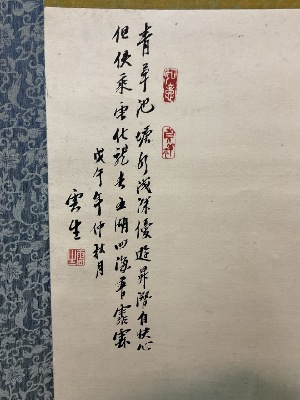 青草池塘水淺深優遊昇潛自快心
但使乘雲化龍去五湖四海普霑霖
戊午年仲秋月
雲生